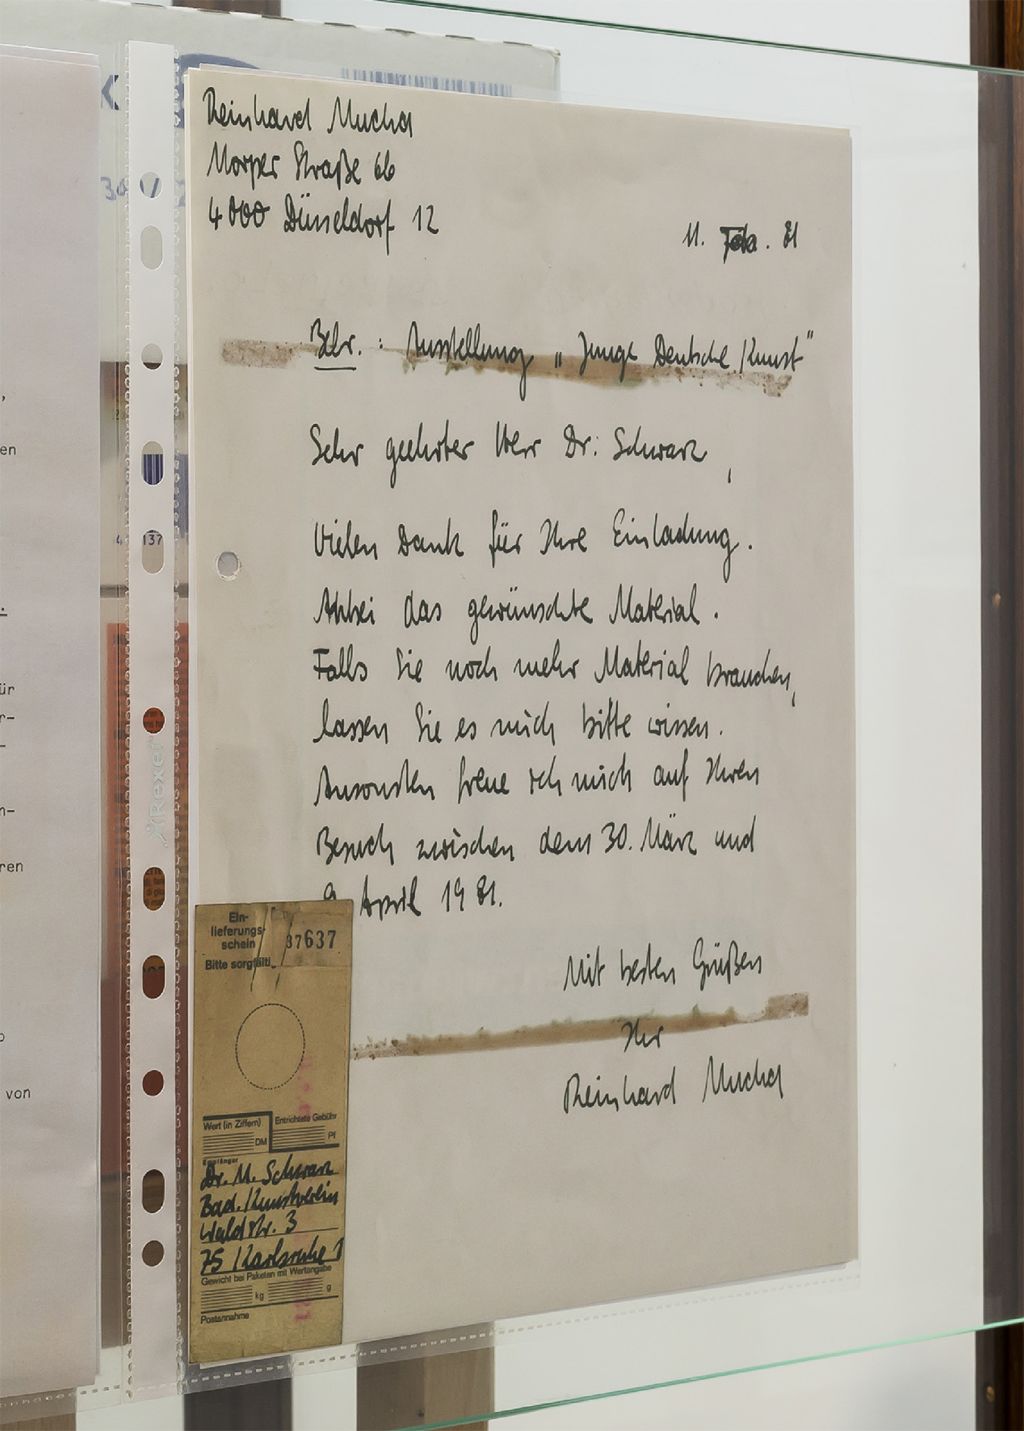 Reinhard Mucha
Morper Straße 66
4000 Düsseldorf 12
11. Feb. 81
Betr. : Ausstellung „Junge Deutsche Kunst"
Sehr geehrter Herr Dr. Schwarz,
Vielen Dank für Ihre Einladung.
Anbei das gewünschte Material.
Falls Sie noch mehr Material brauchen,
lassen Sie es mich bitte wissen.
Ansonsten freue ich mich auf Ihren
Besuch zwischen dem 30. März und
9. April 1981.
Mit besten Grüßen
Ihr
Reinhard Mucha
Ein-
lieferungs-
schein
37637
Bitte sorgfälti
Wert (in Ziffern)
DM
Entrichtete Gebühr
Pf
Empfänger
Dr. M. Schwarz
Bad. Kunstverein
Waldstr. 3
75 Karlsruhe 1
Gewicht bei Paketen mit Wertangabe
kg g
Postannahme
Rexel
137
en
ür
r-
n-
ren
von